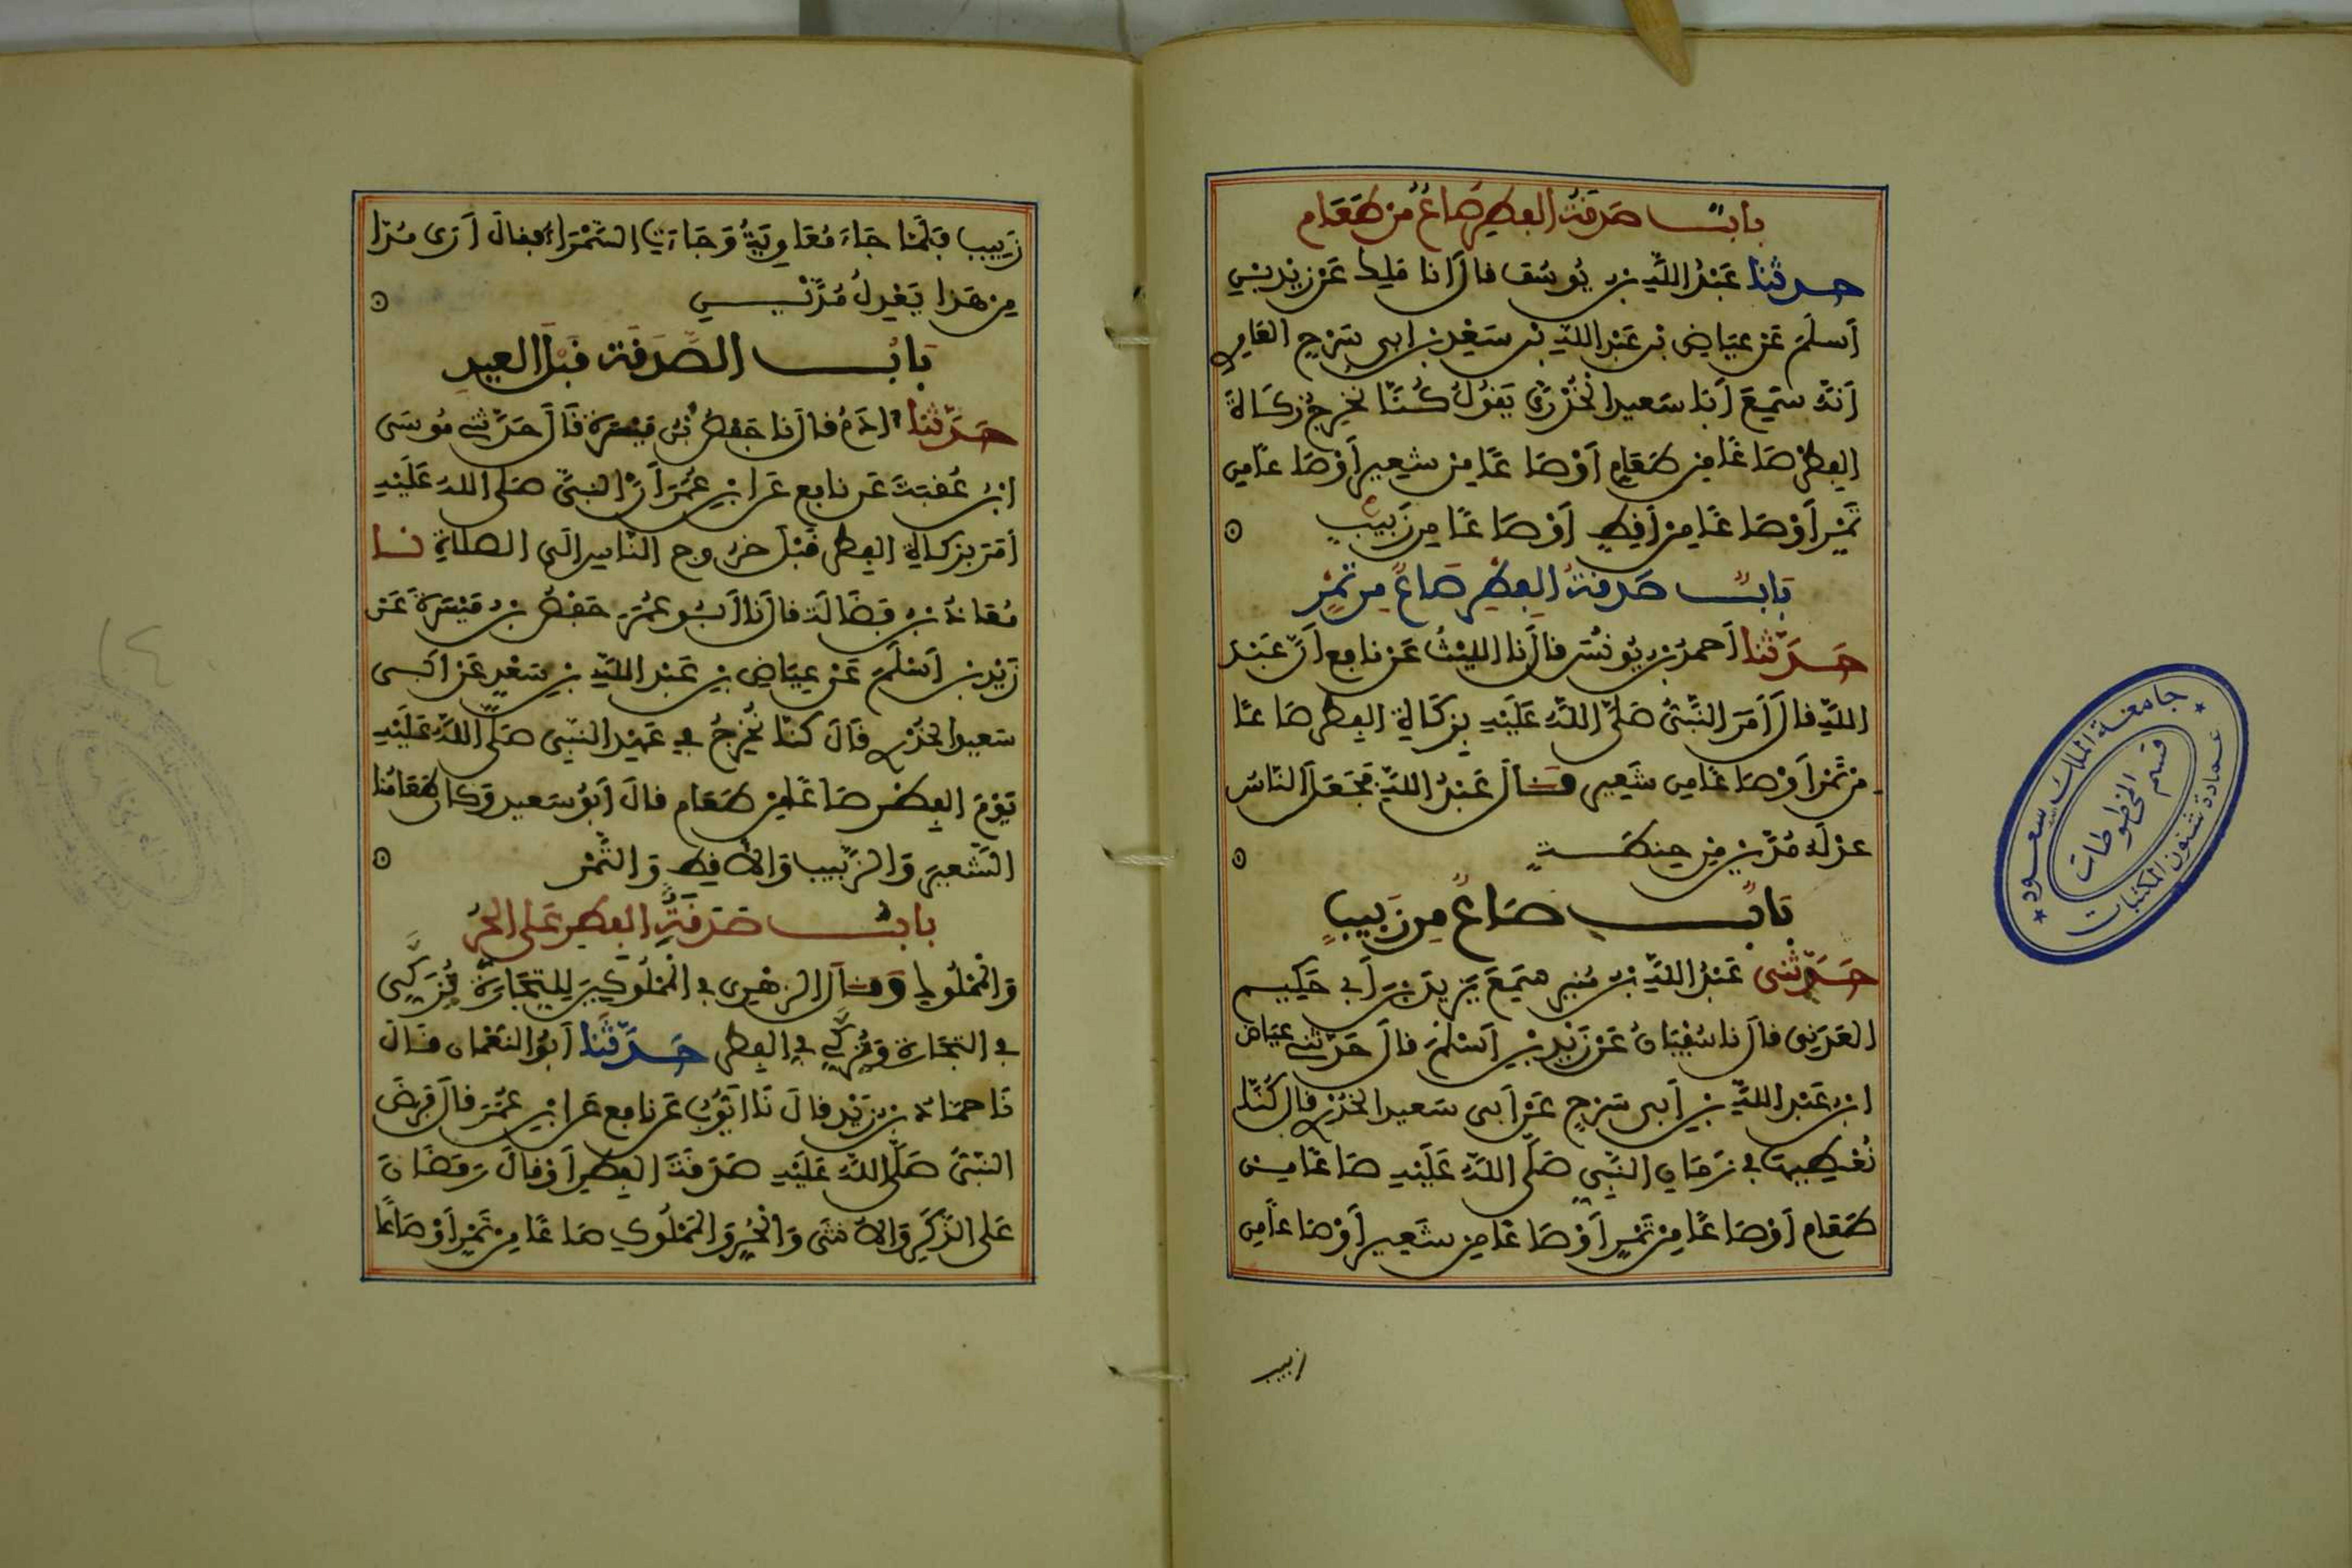 باب صدقة الفطر صاع من طعام
حدثنا عَبْدُ اللَّهِ بن يُوسُف قال انا مَلِك عَنْ زَيْدِ بْنِ
أَسلَمَ عَنْ عِيَاضِ بْنِ عَبْدِ اللَّهِ بْنِ سَعْدِ بْنِ ابى سَرْحٍ العَامِرى
أَنَّهُ سَمِعَ أَبَا سَعِيد الْخُدْرِىَّ يَقُولُ كُنَّا نُخْرِجُ زَكَاةَ
الفِطْرِ صَاعًا مِن طَعَامٍ أَوْ صَاعًا مِن شَعِيرٍ أَوْ صَاعًا مِن
تَمْرٍ أَوْ صَاعًا مِنْ أَقِطٍ أَوْ صَاعًا مِن زَبِيبٍ
بَابُ صَدقةُ الفِطْرِ صَاعٌ مِن تَمْرٍ
حَدَّثنا أَحمدُ بن يُونُسَ قال نا الليْثُ عَنْ نَافِعٍ أَنَّ عَبْدَ
اللَّهِ قالَ أَمَرَ النَّبِىُّ صَلَّى اللَّهُ عَلَيْهِ بِزَكَاةِ الفِطْرِ صَاعًا
مِن تَمْرٍ أَوْ صَاعًا مِن شَعِيرٍ قال عَبْدُ اللَّهِ فَجَعَلَ النَّاسُ
عِدْلَهُ مُدَّيْنِ مِن حِنطَةٍ
بَابُ صَاعٌ مِن زَبِيبٍ
حَدَّثنى عَبْدُ اللَّهِ بن مُنِيرٍ سَمِعَ يَزِيدَ بنَ أَبِى حَكِيمٍ
العَدَنِى قالَ نا سُفْيَانُ عَنْ زَيْدِ بْنِ أَسْلَمَ قالَ حَدَّثنى عِيَاضُ
ابْنُ عَبْدِ اللَّهِ بْنِ أَبى سَرْحٍ عَنْ أَبى سَعِيد الخُدْرِى قال كُنَّا
نُعْطِيهَا فى زَمَانِ النَّبِىِّ صَلَّى اللَّهُ عَلَيْهِ صَاعًا مِن
طَعَامٍ أَوْ صَاعًا مِنْ تَمْرٍ أَوْ صَاعًا مِن شَعِيرٍ أَوْ صَاعًا مِن
زبيب
زَبِيبٍ فَلَمَّا جَاءَ مُعَاوِيَةُ وَجَاءَتِ السَّمْرَاءُ فقالَ أَرَى مُدًّا
مِن هَذا يَعْدِلُ مُدَّيْنِ
بَابُ الصَّدَقَة قَبْلَ العِيدِ
حَدَّثنا ادَمُ قال نا حَفْصُ بْنُ مَيْسَرَة قَالَ حَدَّثنى مُوسَى
ابْنُ عُقبَةَ عَن نافِعٍ عَن ابْنِ عُمَرَ أَنَّ النبىَّ صَلى اللهُ عَلَيْهِ
أَمَرَ بِزَكَاةِ الفِطْرِ قَبْلَ خرُوجِ النَّاسِ الَى الصَّلاةِ نا
مُعَاذُ بن فَضَالَة قالَ نا أَبُو عُمَرَ حَفْصُ بن مَيْسَرَةَ عَن
زَيْدِ بن أَسْلَمَ عَنْ عِيَاضِ بْنِ عَبْدِ اللَّهِ بْنِ سَعْدٍ عَن أَبى
سَعِيد الخُدْرِى قَالَ كنَّا نُخْرِجُ فِى عَهْدِ النَّبِىِّ صَلَّى اللَّهُ عَلَيْهِ
يَوْمَ الفِطْرِ صَاعًا مِن طَعَام قالَ أَبُو سَعِيد وَكانَ طَعَامُنا
الشَّعِيرَ وَالزَّبِيبَ وَالأَقِطَ وَالتَّمْرَ
بابُ صَدَقَةِ الفِطْرِ عَلى الحُرِّ
وَالْمَمْلُوكِ وَقالَ الزهرى فى الْمَمْلُوكِينَ لِلتِّجَارَةِ يُزَكَّى
فى التجَارَة وَيُزَكَّى فى الفِطْرِ حَدَّثَنَا أَبُو النعْمان قالَ
نَا حمَّادُ بن زَيْدٍ قالَ نَا أيُّوبُ عَن نافِعٍ عَن ابْنِ عُمَرَ قالَ فَرَضَ
النَّبىُّ صَلَّى اللَّهُ عَلَيْهِ صَدَقَةَ الفِطْرِ أَوْ قالَ رَمَضَانَ
عَلى الذَّكَرِ وَالأُنثَى وَالْحُرِّ وَالْمَمْلُوكِ صَاعًا مِن تَمْرٍ أَوْ صَاعًا
جامعة الملك سعود
قسم المخطوطات
عمادة شئون المكتبات